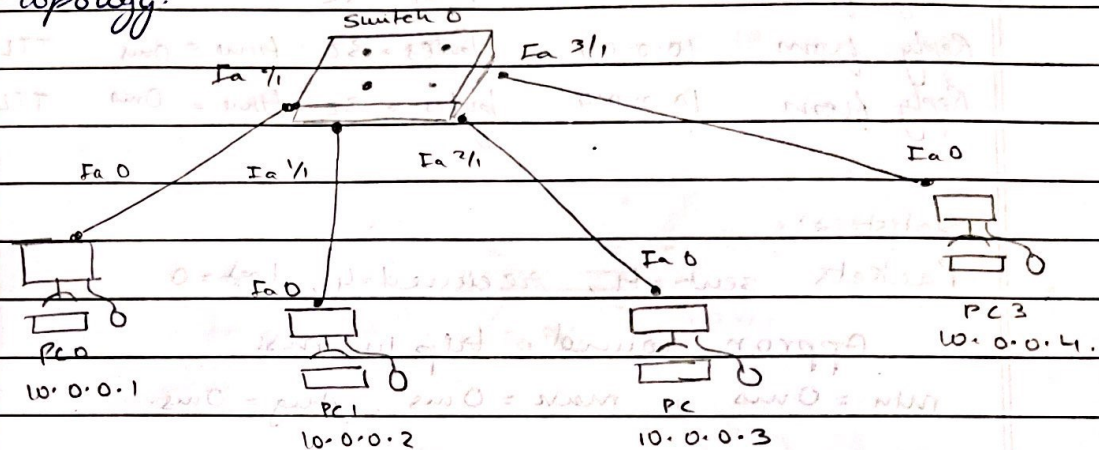 topology.
Switch 0
Fa 0/1
Fa 3/1
Fa 0
Fa 1/1
Fa 2/1
Fa 0
Fa 0
Fa 0
PC0
10.0.0.1
PC1
10.0.0.2
PC
10.0.0.3
PC3
10.0.0.4.